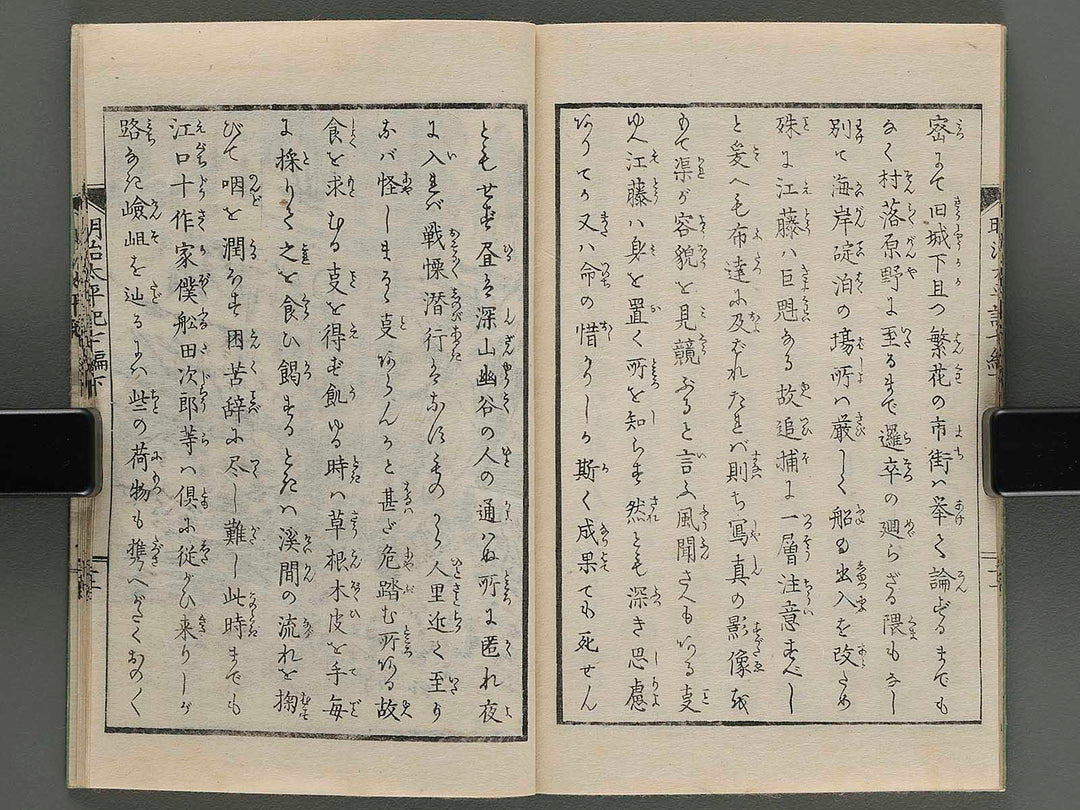 密にて旧城下且つ繁花の市街ハ挙て論ずるまでも
なく村落原野に至るまで邏卒の廻らざる隈もなし
別て海岸碇泊の場所ハ厳しく船の出入を改ため
殊に江藤ハ巨魁なる故追捕に一層注意すべし
と爰へも布達に及ばれたれバ則ち写真の影像を
もて渠が容貌を見競ぶると言ふ風聞さへもある事
ゆへ江藤ハ身を置く所を知らず然とも深き思慮
ありてか又ハ命の惜かりしか斯く成果ても死せん
ともせず昼は深山幽谷の人の通ハぬ所に匿れ夜
に入れバ戦慄潜行はなすものから人里近く至り
なバ怪しまるゝ事あらんかと甚だ危踏む所ある故
食を求むる事を得ず飢ゆる時ハ草根木皮を手毎
に採りて之を食ひ餲するときハ溪間の流れを掬
びて咽を潤ほす困苦辞に尽し難し此時までも
江口十作家僕船田次郎等ハ倶に従がひ来りしが
路なき嶮岨を辿るにハ些の荷物も携へがたくおのく
明治太平記七編下